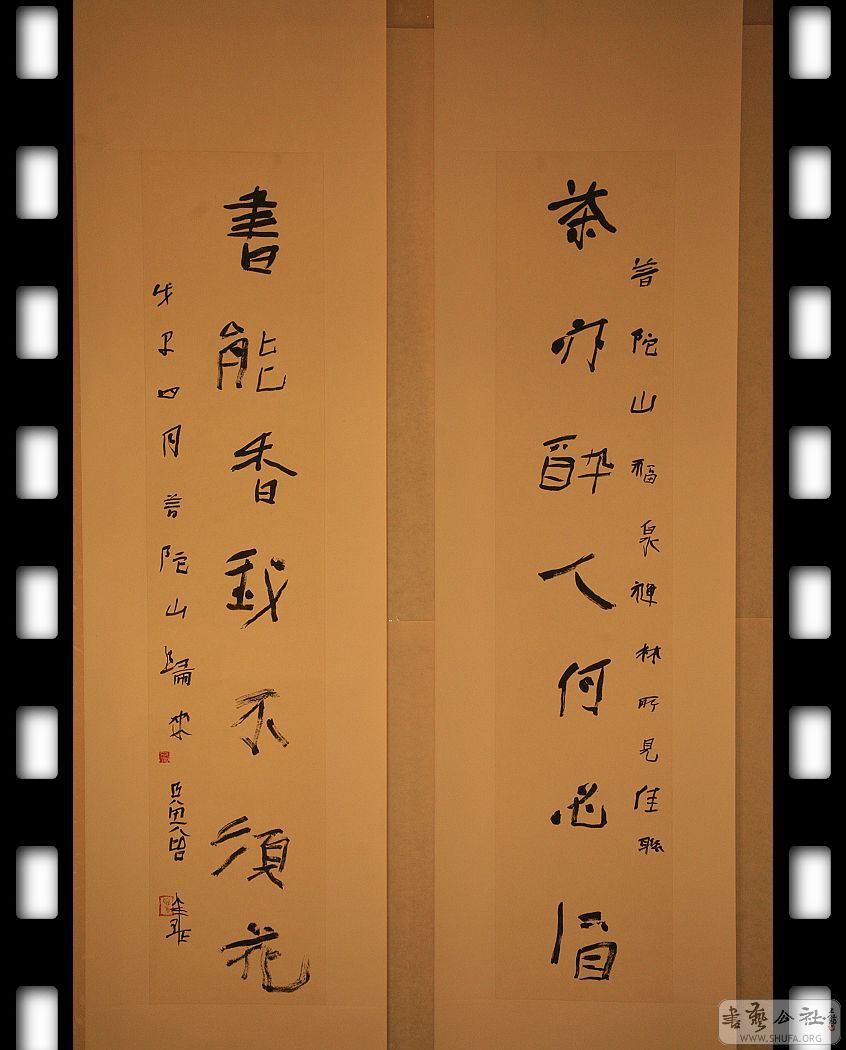 茶亦醉人何必酒
普陀山福泉禪林所見佳聯
書能香我不須花
戊子四月普陀山歸來
書藝公社
WWW.SHUFA.ORG